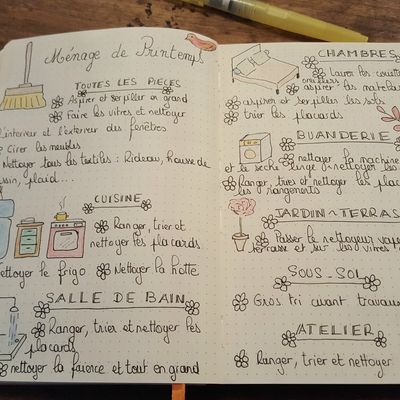 Ménage de Printemps
TOUTES LES PIECES
Aspirer et serpiller en grand
Faire les vitres et nettoyer
l'interieur et l'exterieur des fenêtres
Cirer les meubles
Nettoyer tous les textiles : Rideau, housse de
plaid...
CUISINE
Ranger, trier et
nettoyer les placards
nettoyer le frigo Nettoyer la hotte
SALLE DE BAIN
Ranger, trier et nettoyer les
placards
nettoyer la faïence et tout en grand
CHAMBRES
Laver les
aspirer les
aspirer et serpiller les sols
trier les placards
BUANDERIE
nettoyer la machine
et le seche linge
nettoyer les
Ranger, trier et nettoyer les
rangements
JARDIN ~ TERRAS
Passer le nettoyeur
terrasse et sur les vitres
SOUS-SOL
Gros tri avant travaux
ATELIER
Ranger, trier et nettoyer